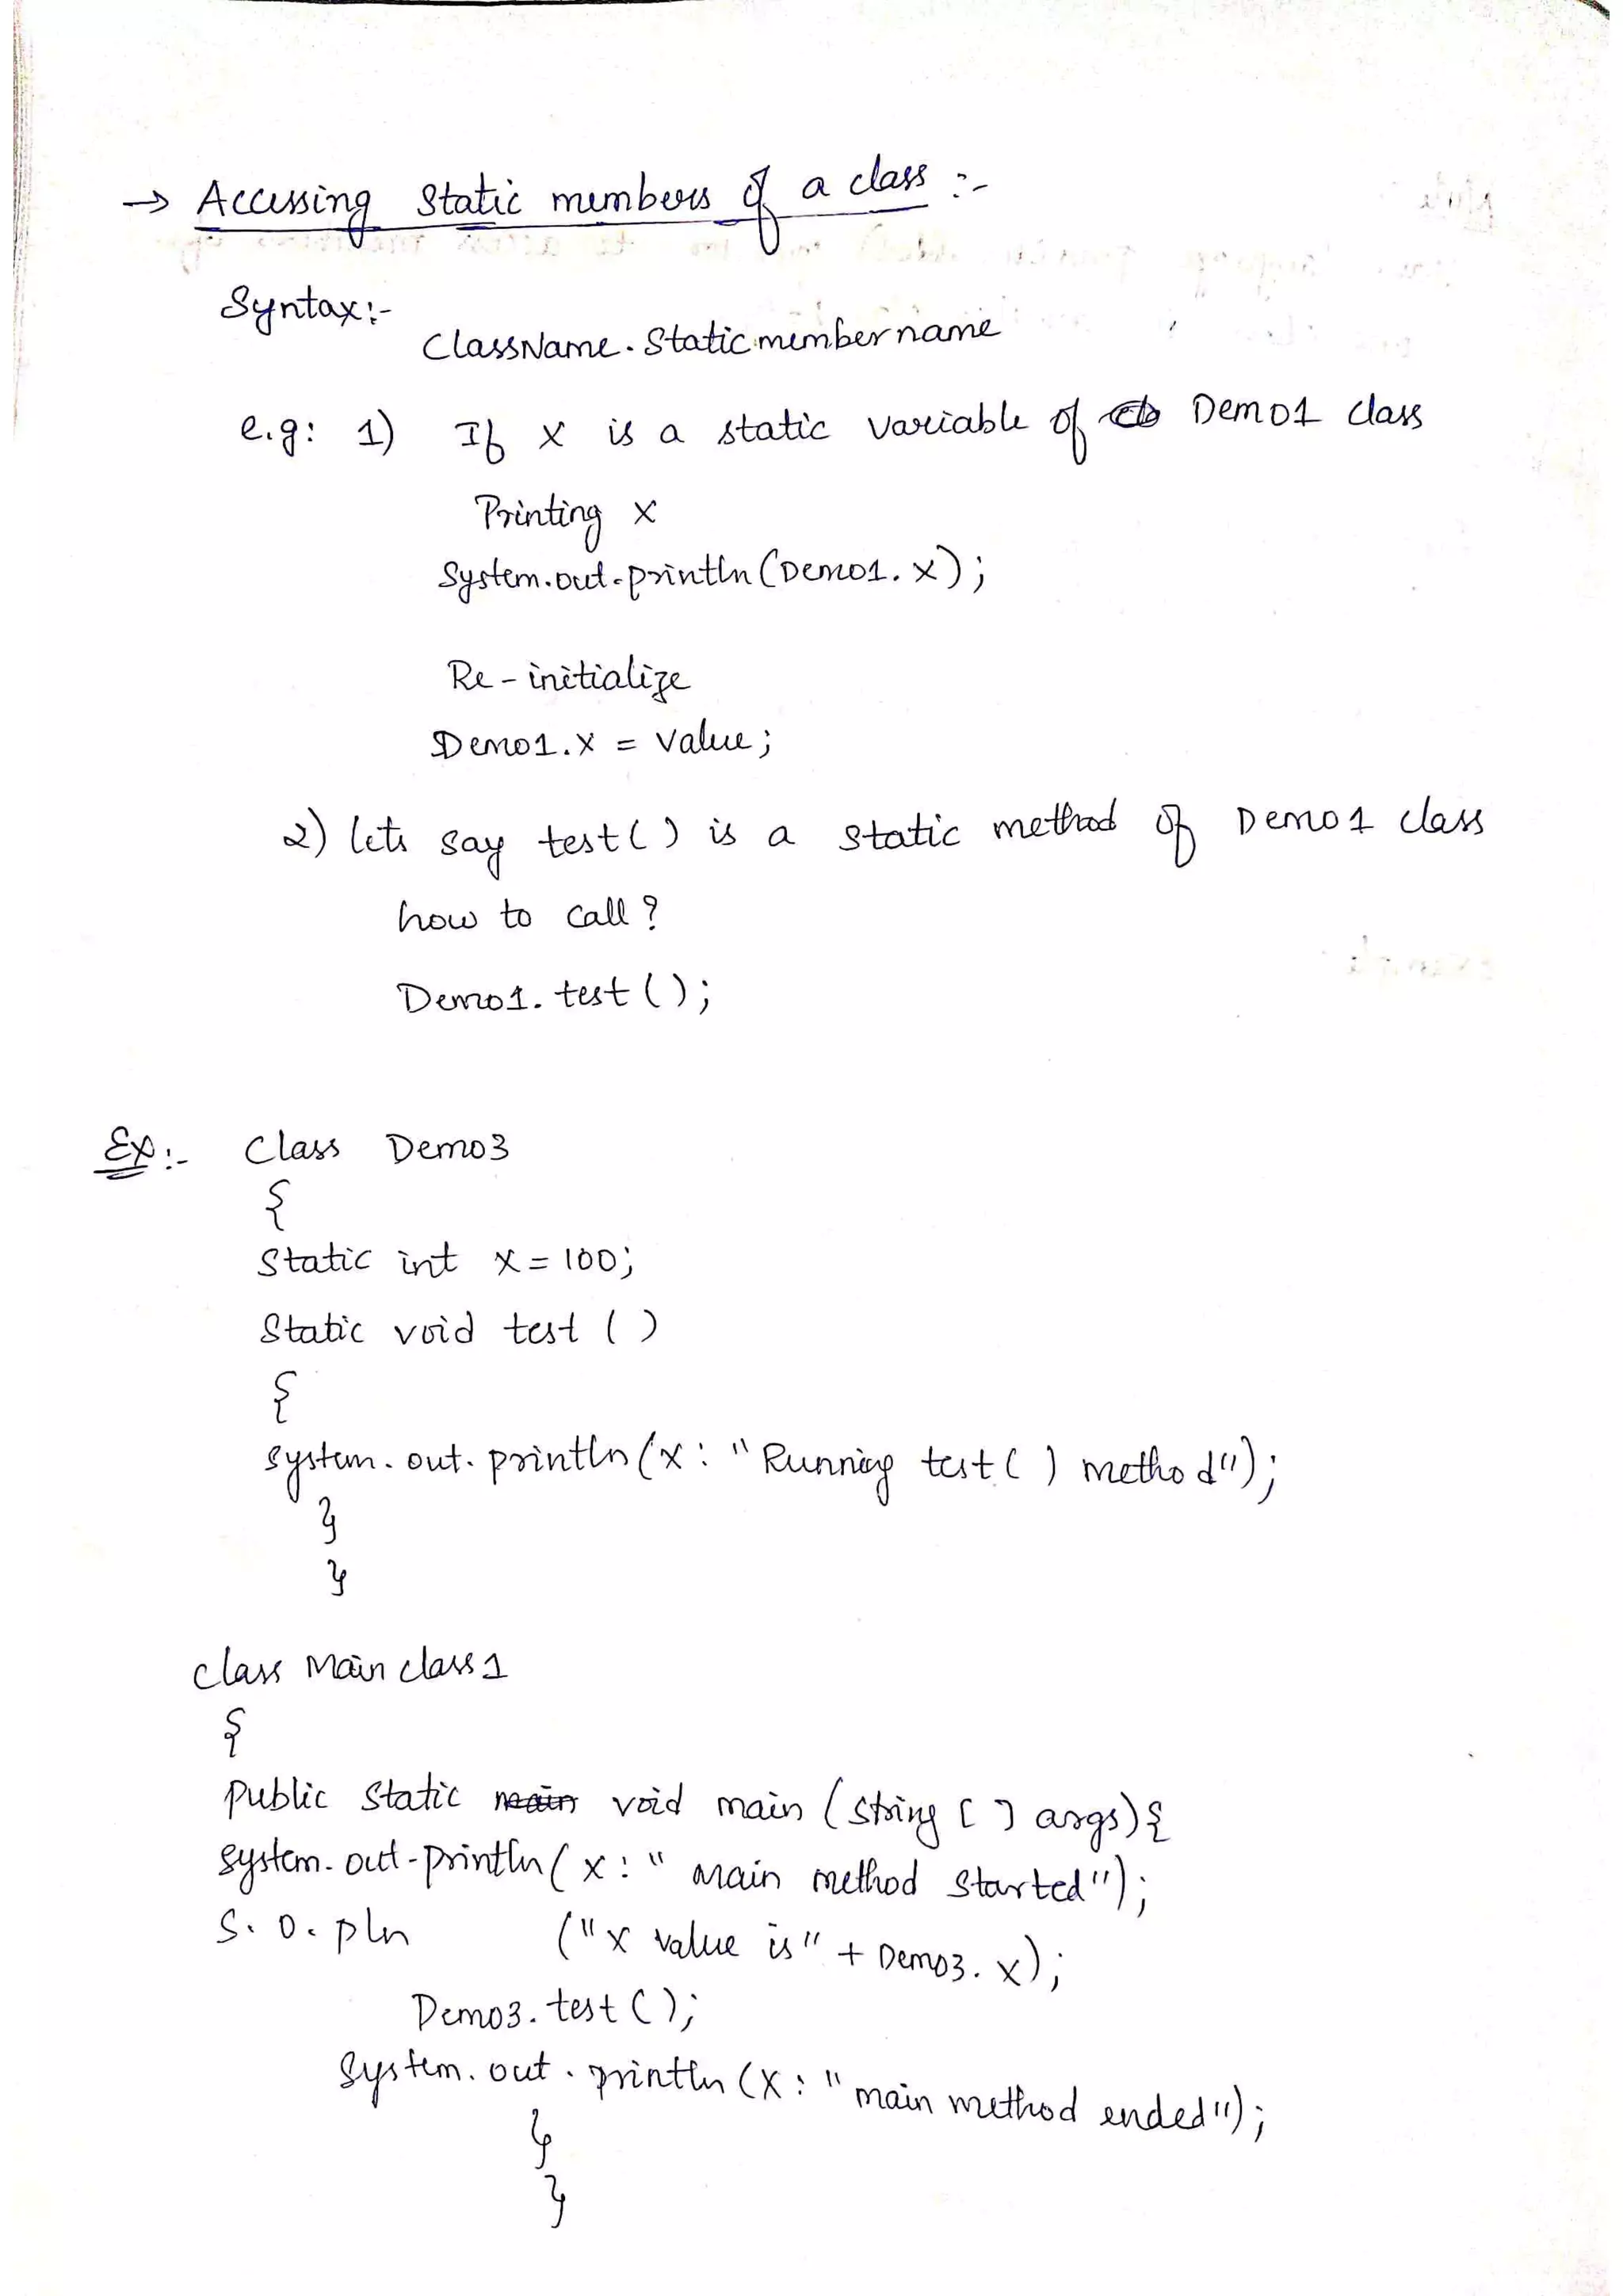 → Accessing Static members of a class :-
Syntax:-
ClassName. Static member name
e.g: 1) If x is a static variable of Demo1 class
Printing x
System.out.println(Demo1.x);
Re-initialize
Demo1.x = value;
2) lets say test() is a static method of Demo1 class
how to call?
Demo1.test();
Ex:- Class Demo3
{
Static int x = 100;
Static void test ()
{
system.out.println(x: "Running test() method");
}
}
class Main class1
{
public static main void main (string [] args){
system.out.println(x: "main method started");
S.O.pln ("x value is" + Demo3.x);
Demo3.test();
System.out.println(x: "main method ended");
}
}